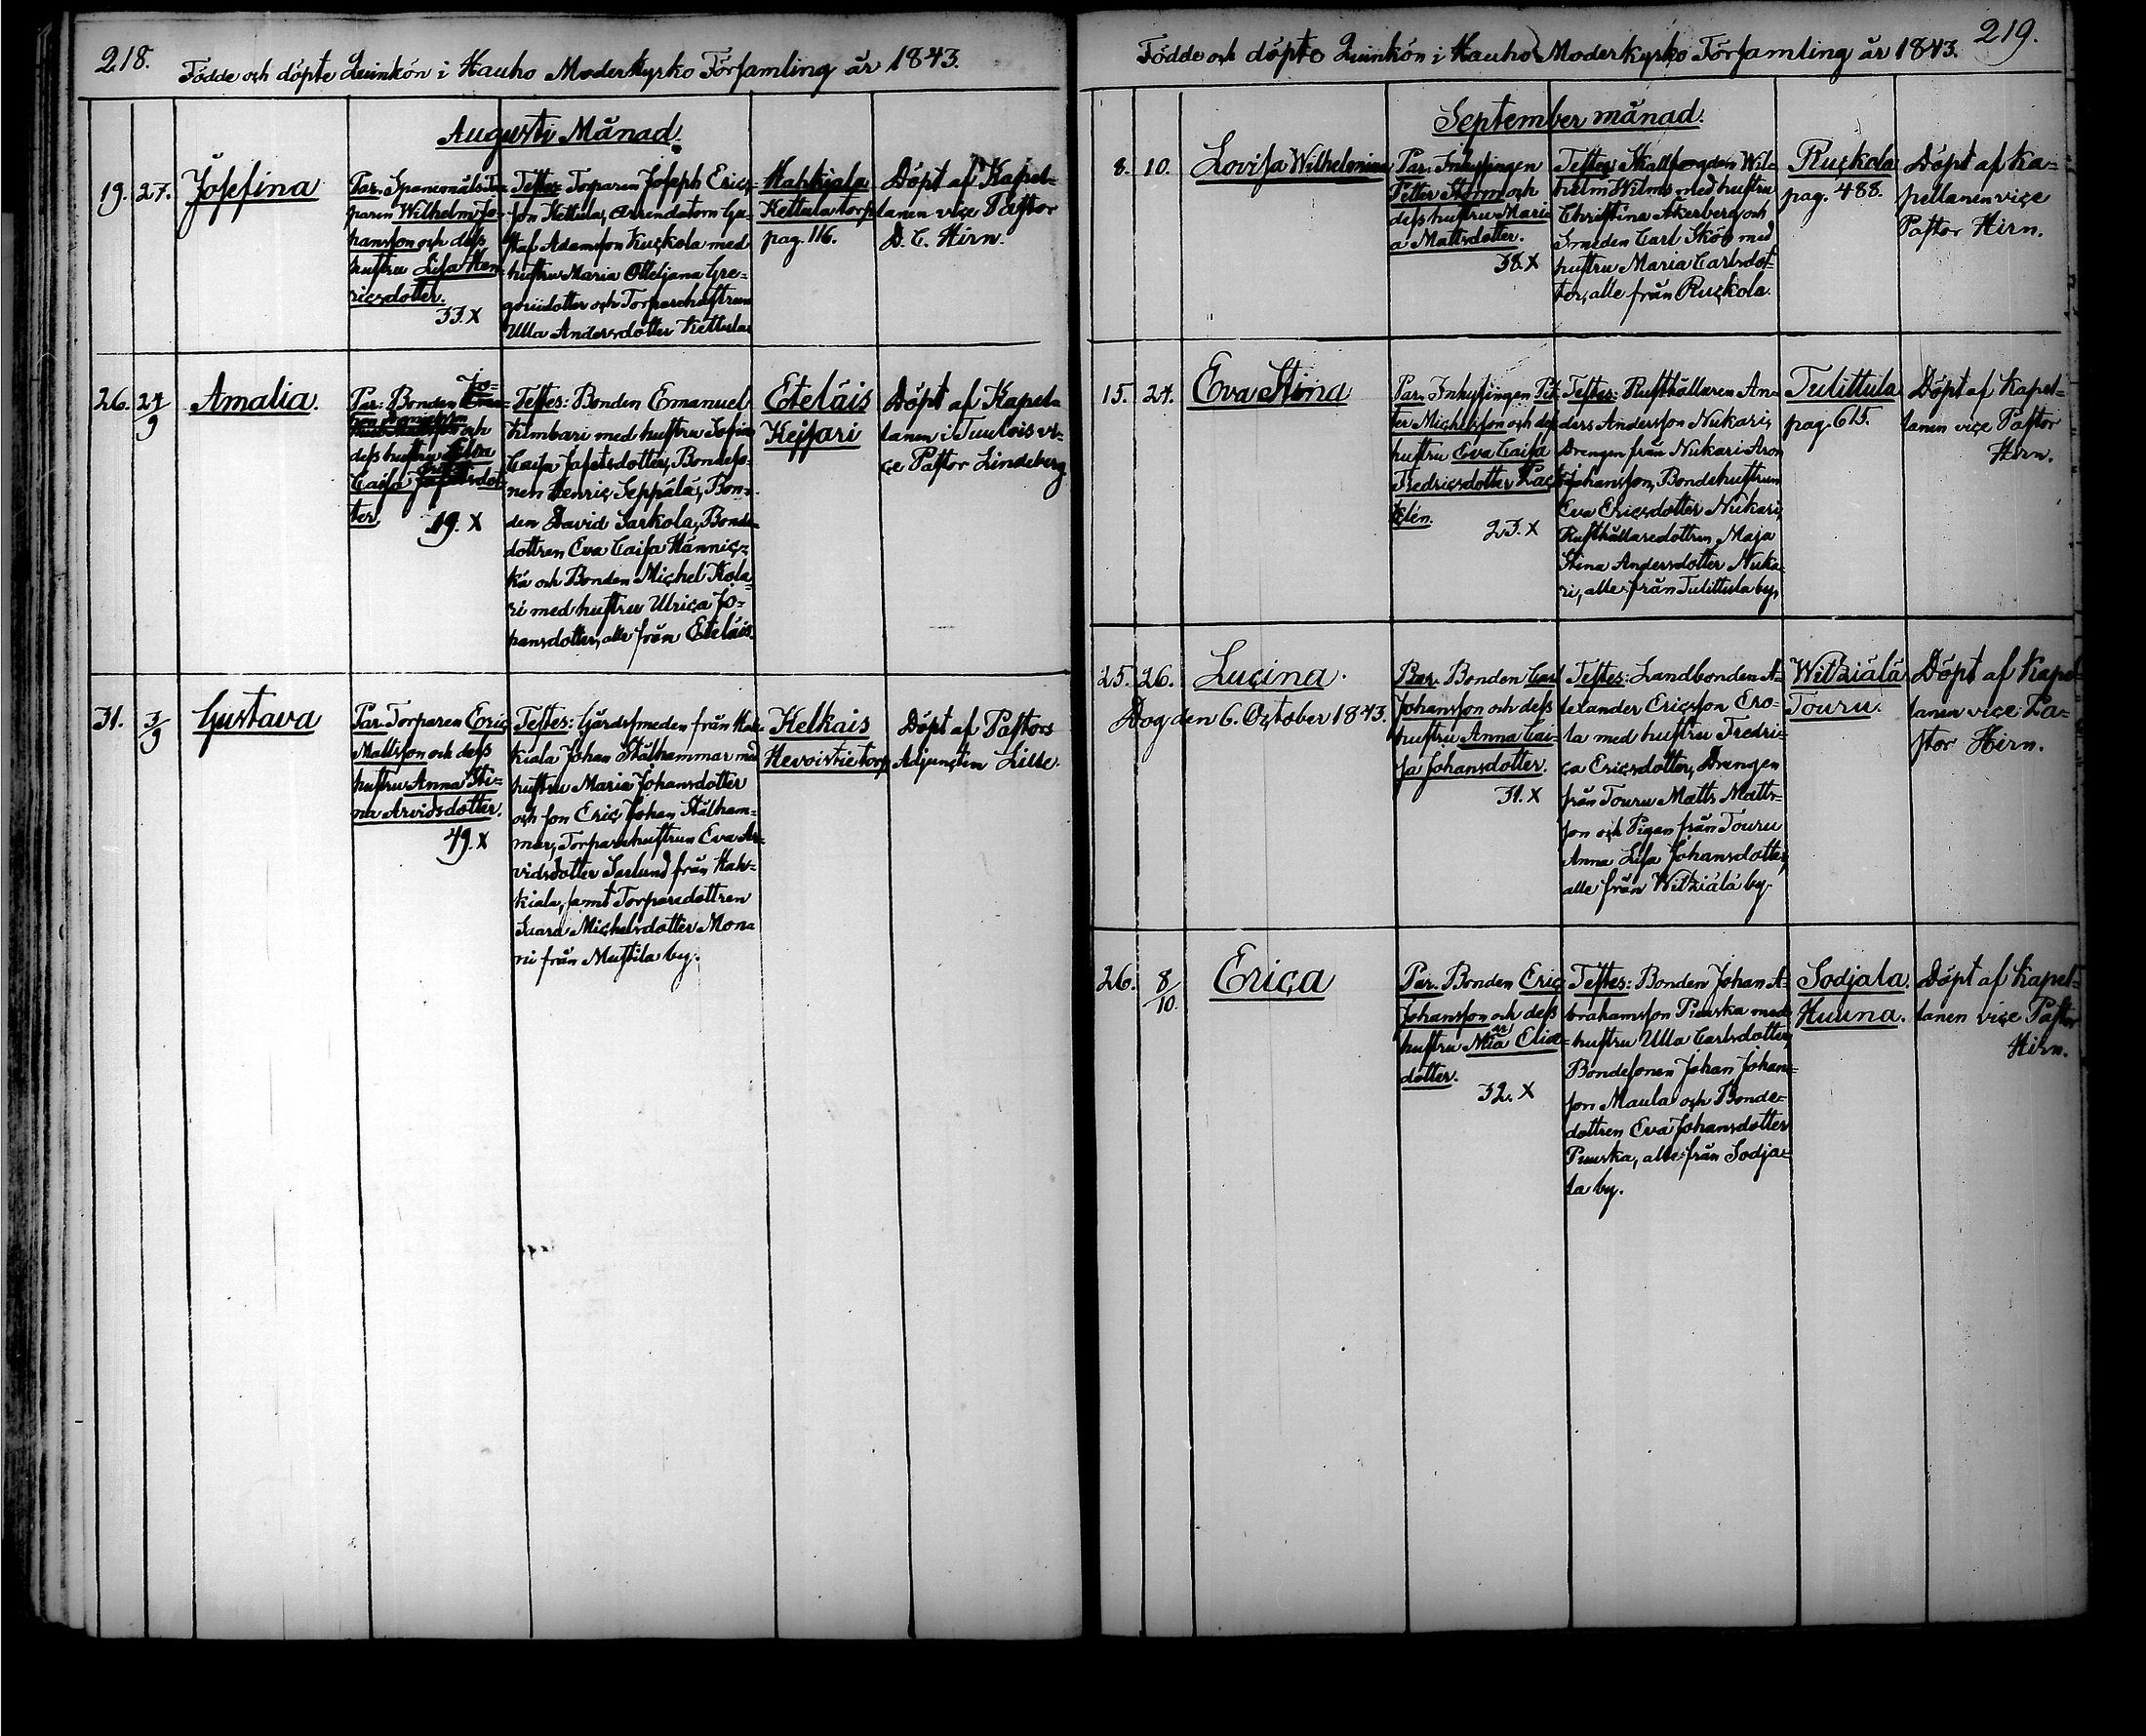 218.
Födde och döpte Quinkön i Hauho Moderkyrko Församling år 1843.
Augusti Månad.
19. 27. Josefina
Par.
paren Wilhelm Jo-
hansson och dess
hustru Lisa Hen-
ricsdotter.
33. X
Testes Torparen Joseph Erics-
son Kettula, Arrendatorn Gu-
staf Adamsson Kuckola med
hustru Maria Gre-
goriidotter och Torparehustrun
Ulla Andersdotter Kettula
Hahkiala
Kettula torp
pag. 116.
Döpt af Kapel-
lanen vice Pastor
D. C. Hirn.
26. 24/9 Amalia.
Par: Bonden Jo-
och
dess hustru
Caisa
ter.
19. X
Testes: Bonden Emanuel
Kimbari med hustru Sofia
Caisa Jafetsdotter, Bondeso-
nen Henric Seppälä, Bon-
den David Sarkola, Bonde-
dottren Eva Caisa Hännic-
kä och Bonden Michel Kola-
ri med hustru Ulrica Jo-
hansdotter, alle från Eteläis.
Eteläis
Kejsari
Döpt af Kapel-
lanen i Tuulois vi-
ce Pastor Lindeberg
31. 3/9 Gustava
Par. Torparen Eric
Mattsson och dess
hustru Anna Sti-
na Arvidsdotter.
49. X
Testes: Gårdssmeden från Hah-
kiala Johan Stålhammar med
hustru Maria Johansdotter
och son Eric Johan Stålham-
mar, Torparehustrun Eva Ar-
vidsdotter Saxlund från Hah-
kiala, samt Torparedottren
Saara Michelsdotter Mona
ri från Mustila by.
Kelkais
Hevoistie torp
Döpt af Pastors
Adjuncten Lilse.
219.
Födde och döpte Quinkön i Hauho Moderkyrko Församling år 1843.
September månad.
8. 10. Lovisa Wilhelmina
Par. Inhysingen
Petter Storm och
dess hustru Mari
a Mattsdotter.
38. X
Testes Skallfogden Wil-
helm Wilms med hustru
Christina Åkerberg och
Smeden Carl Skög med
hustru Maria Carlsdot-
ter, alle från Ruckola.
Ruckola
pag. 488.
Döpt af Ka-
pellanen vice
Pastor Hirn.
15. 24. Eva Stina
Par. Inhysingen Pet
ter Michelsson och dess
hustru Eva Caisa
Fredricsdotter
23. X
Testes: Rusthållaren An-
ders Andersson Nukari,
Drengen från Nukari Aron
Johansson, Bondehustrun
Eva Ericsdotter Nukari,
Rusthållaredottren Maja
Stina Andersdotter Nuka-
ri, alle från Tulittula by.
Tulittula
pag. 615.
Döpt af Kapel-
lanen vice Pastor
Hirn.
25. 26. Lucina.
Dog den 6. October 1843.
Par. Bonden Carl
Johansson och dess
hustru Anna Cai-
sa Johansdotter.
31. X
Testes: Landbonden A-
lexander Ericsson Ero-
la med hustru Fredri-
ca Ericsdotter, Drengen
från Touru Matts Matts-
son och Pigan från Touru
Anna Lisa Johansdotter,
alle från Witziälä by.
Witziälä
Touru.
Döpt af Kapel-
lanen vice Pa-
stor Hirn.
26. 8/10. Erica
Par. Bonden Eric
Johansson och dess
hustru Mia Elias-
dotter.
32. X
Testes: Bonden Johan A-
brahamsson Piuska med
hustru Ulla Carlsdotter,
Bondesonen Johan Johans-
son Maula och Bonde-
dottren Eva Johansdotter
Piuska, alle från Sodja-
la by.
Sodjala.
Huuna.
Döpt af Kapel-
lanen vice Pastor
Hirn.